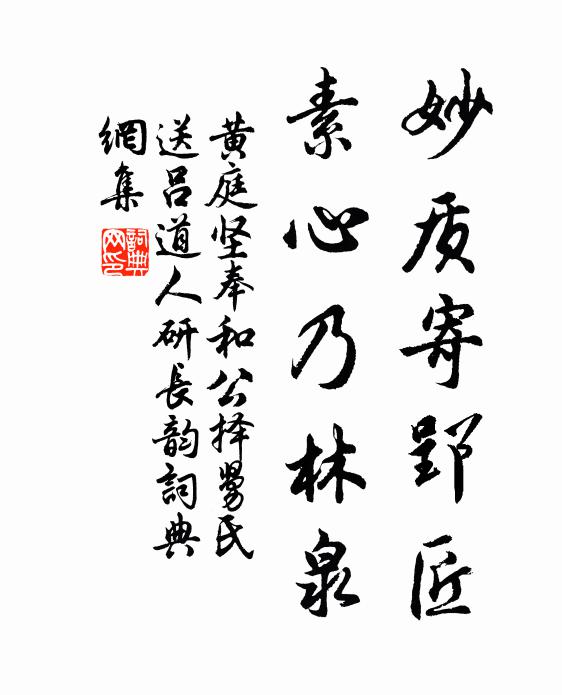 妙质寄郢匠
素心乃林泉
黄庭坚奉和公择舅氏
送吕道人研长韵词典
網集
詞典网印